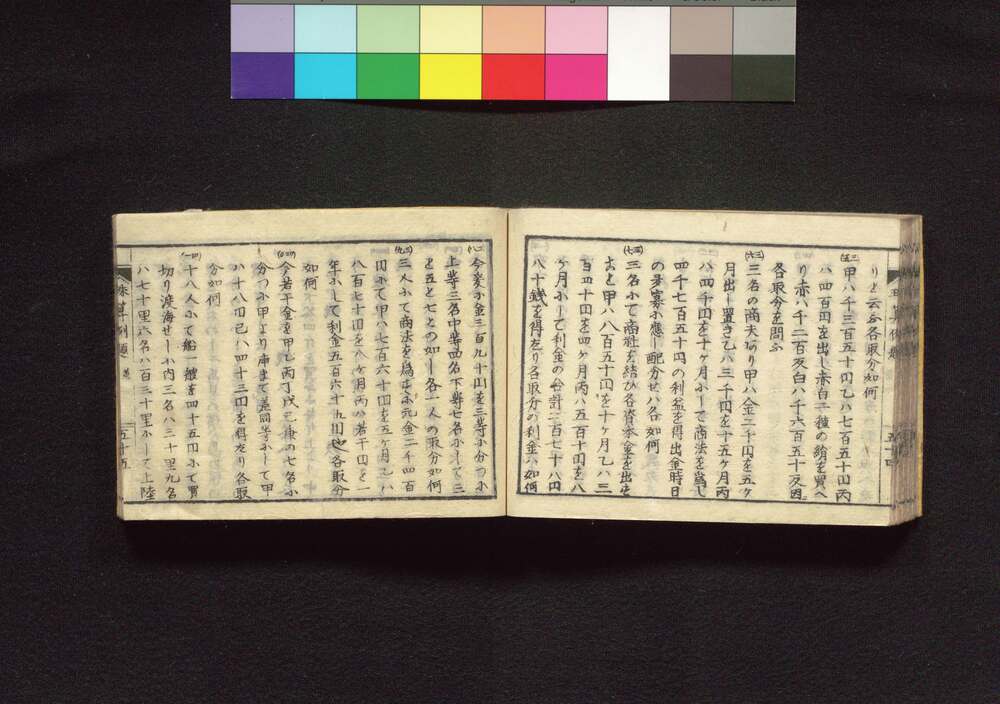 りと云ふ各取分如何
(三五)
甲ハ千三百五十円乙ハ七百五十円丙
ハ四百円を出し赤白二種の絹を買へ
り赤ハ千二百反白ハ千六百五十反因
各取分を問ふ
(三六)
三名の商夫あり甲ハ金二千円を五ヶ
月出し置き乙ハ三千円を十五ヶ月丙
ハ四千円を十ヶ月小して商法を為し
四千七百五十円の利益を得出金時日
の多寡小應し配分せハ各如何
(三七)
三名小て商社を結び各資本金を出せ
しと甲ハ八百五十円を十ヶ月乙ハ三
百五十円を四ヶ月丙ハ五百十円を八
ヶ月小して利金の合計三百七十八円
八十銭を得たり各取分の利金ハ如何
(三八)
今爰小金三百九十円を三等小分つ小
上等三名中等四名下等七名小して三
と五と七との如し各一人の取分如何
(三九)
三人小て商法を為す小元金二千四百
円小て甲ハ七百六十円を五ヶ月乙ハ
八百七十円を八ヶ月丙ハ若干円を一
年小して利金五百六十九円也各取分
如何
(四十)
今若干金を甲乙丙丁戊己庚の七名小
分つ小甲より庚まて差同等小して甲
ハ十八円己ハ四十三円を得たり各取
分如何
(四一)
十八人小て船一艘を四十五円小て買
切り渡海せし小内三名ハ三十里九名
ハ七十里六名ハ百三十里小して上陸
珠算例題
五十五